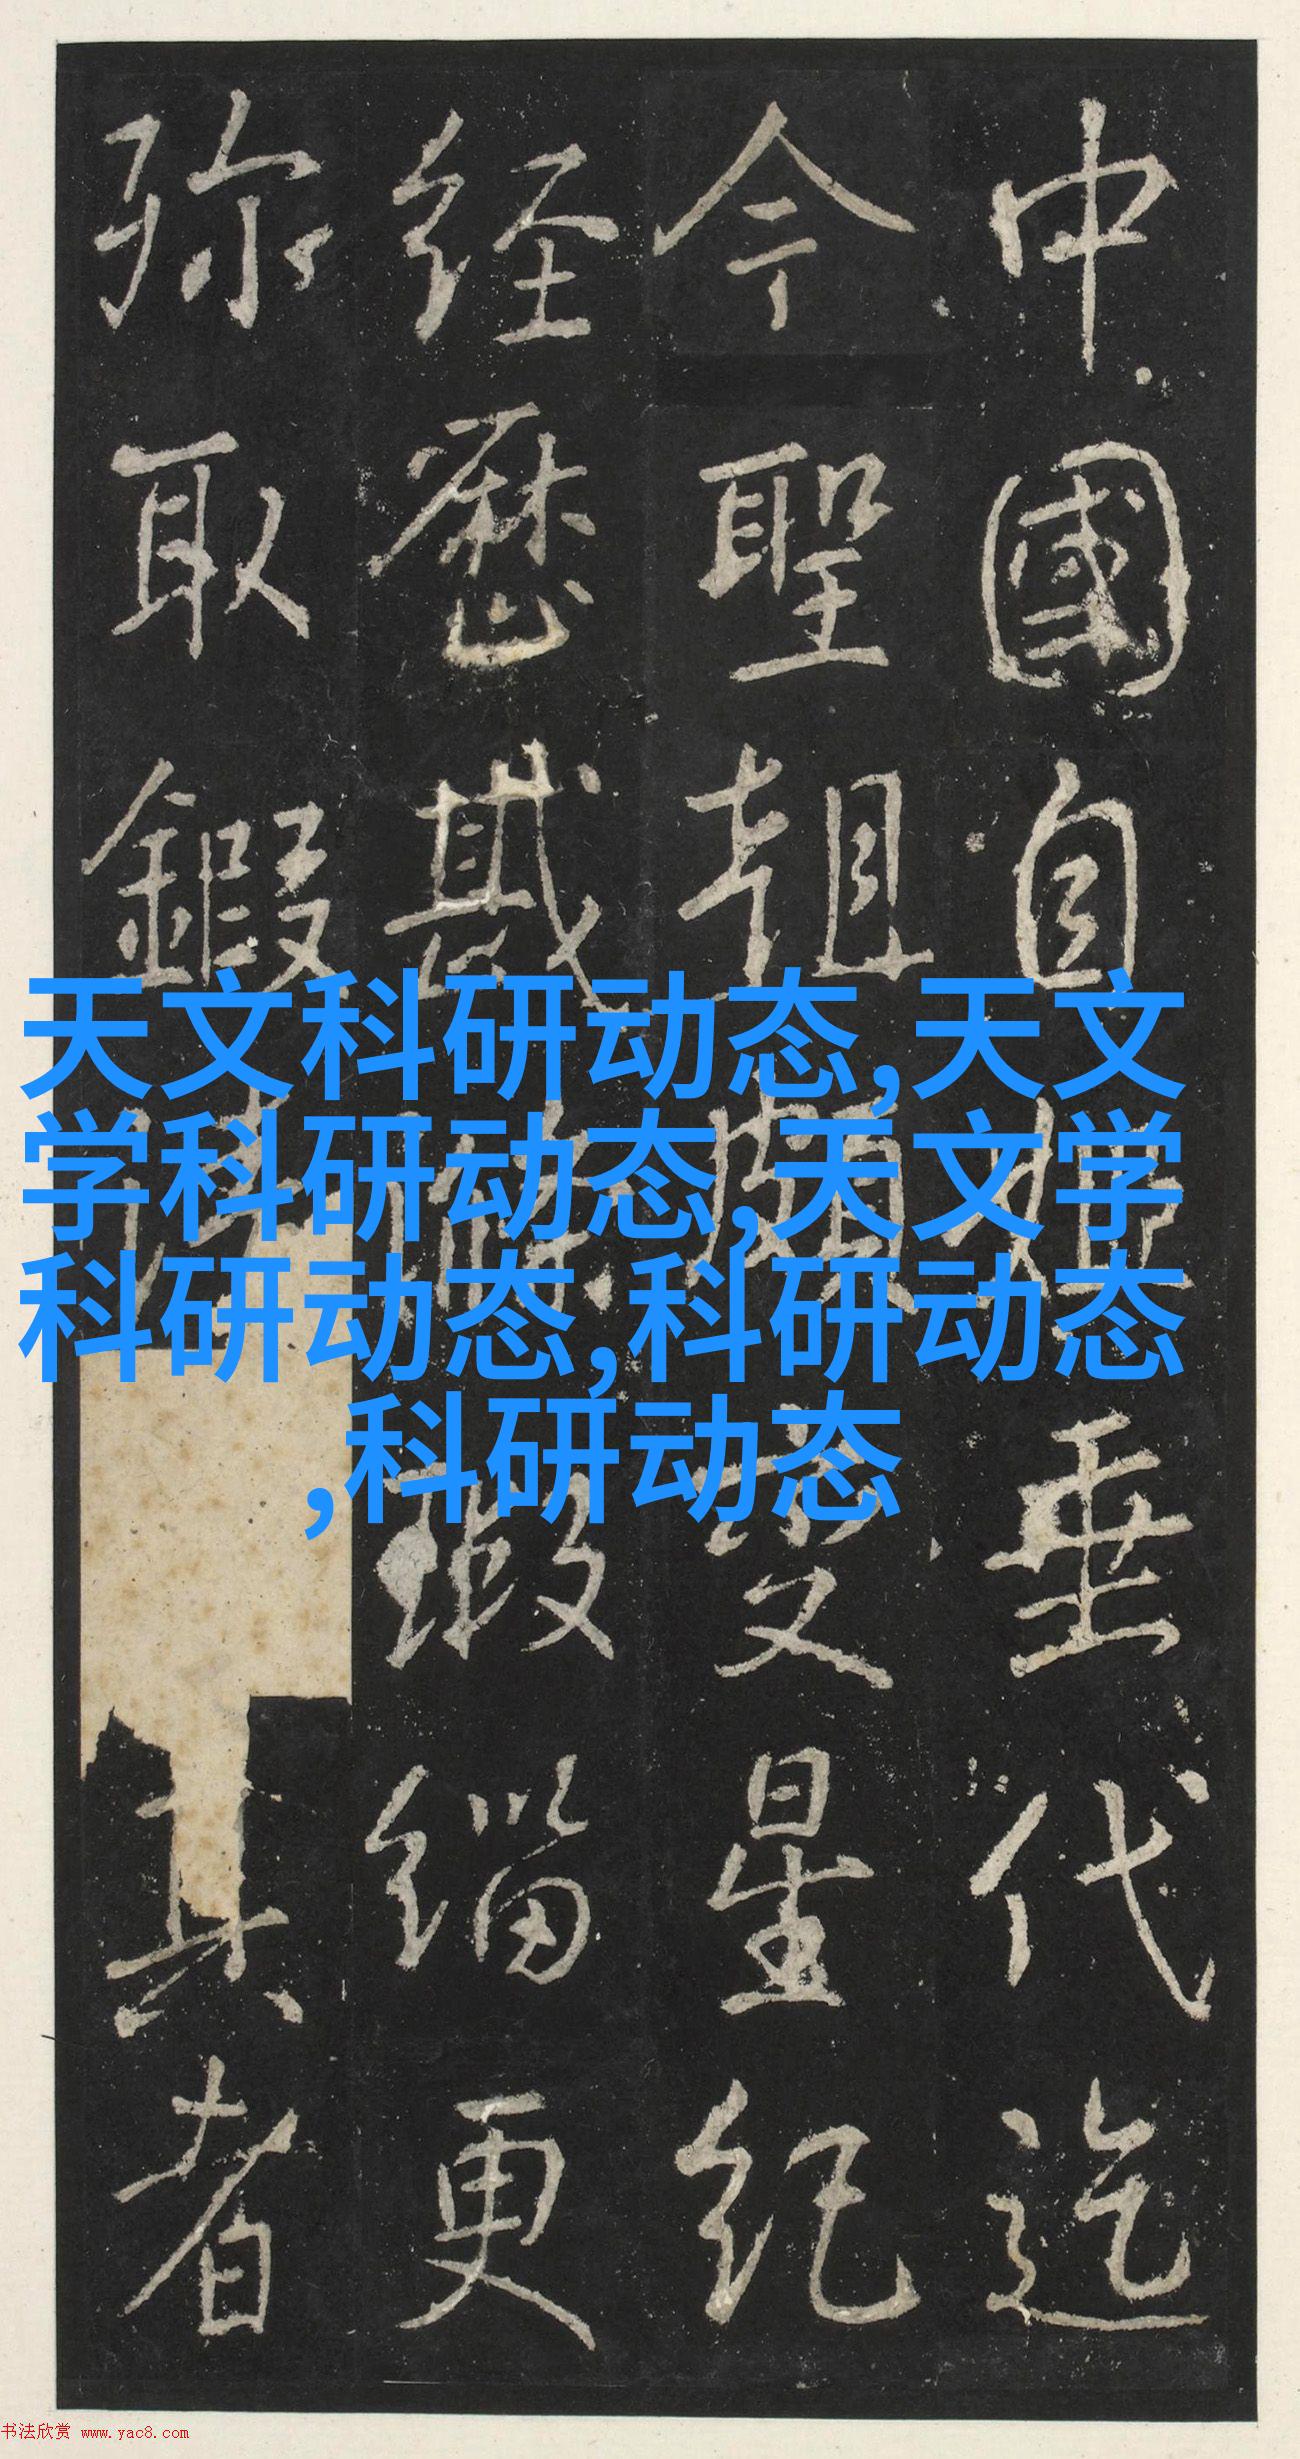 中國自垂代迄
今聖朝星紀
经歷緇更
弥取鍜真者
天文科研动态,天文
学科研动态,天文学
科研动态,科研动态
,科研动态
书法欣赏 www.yac8.com